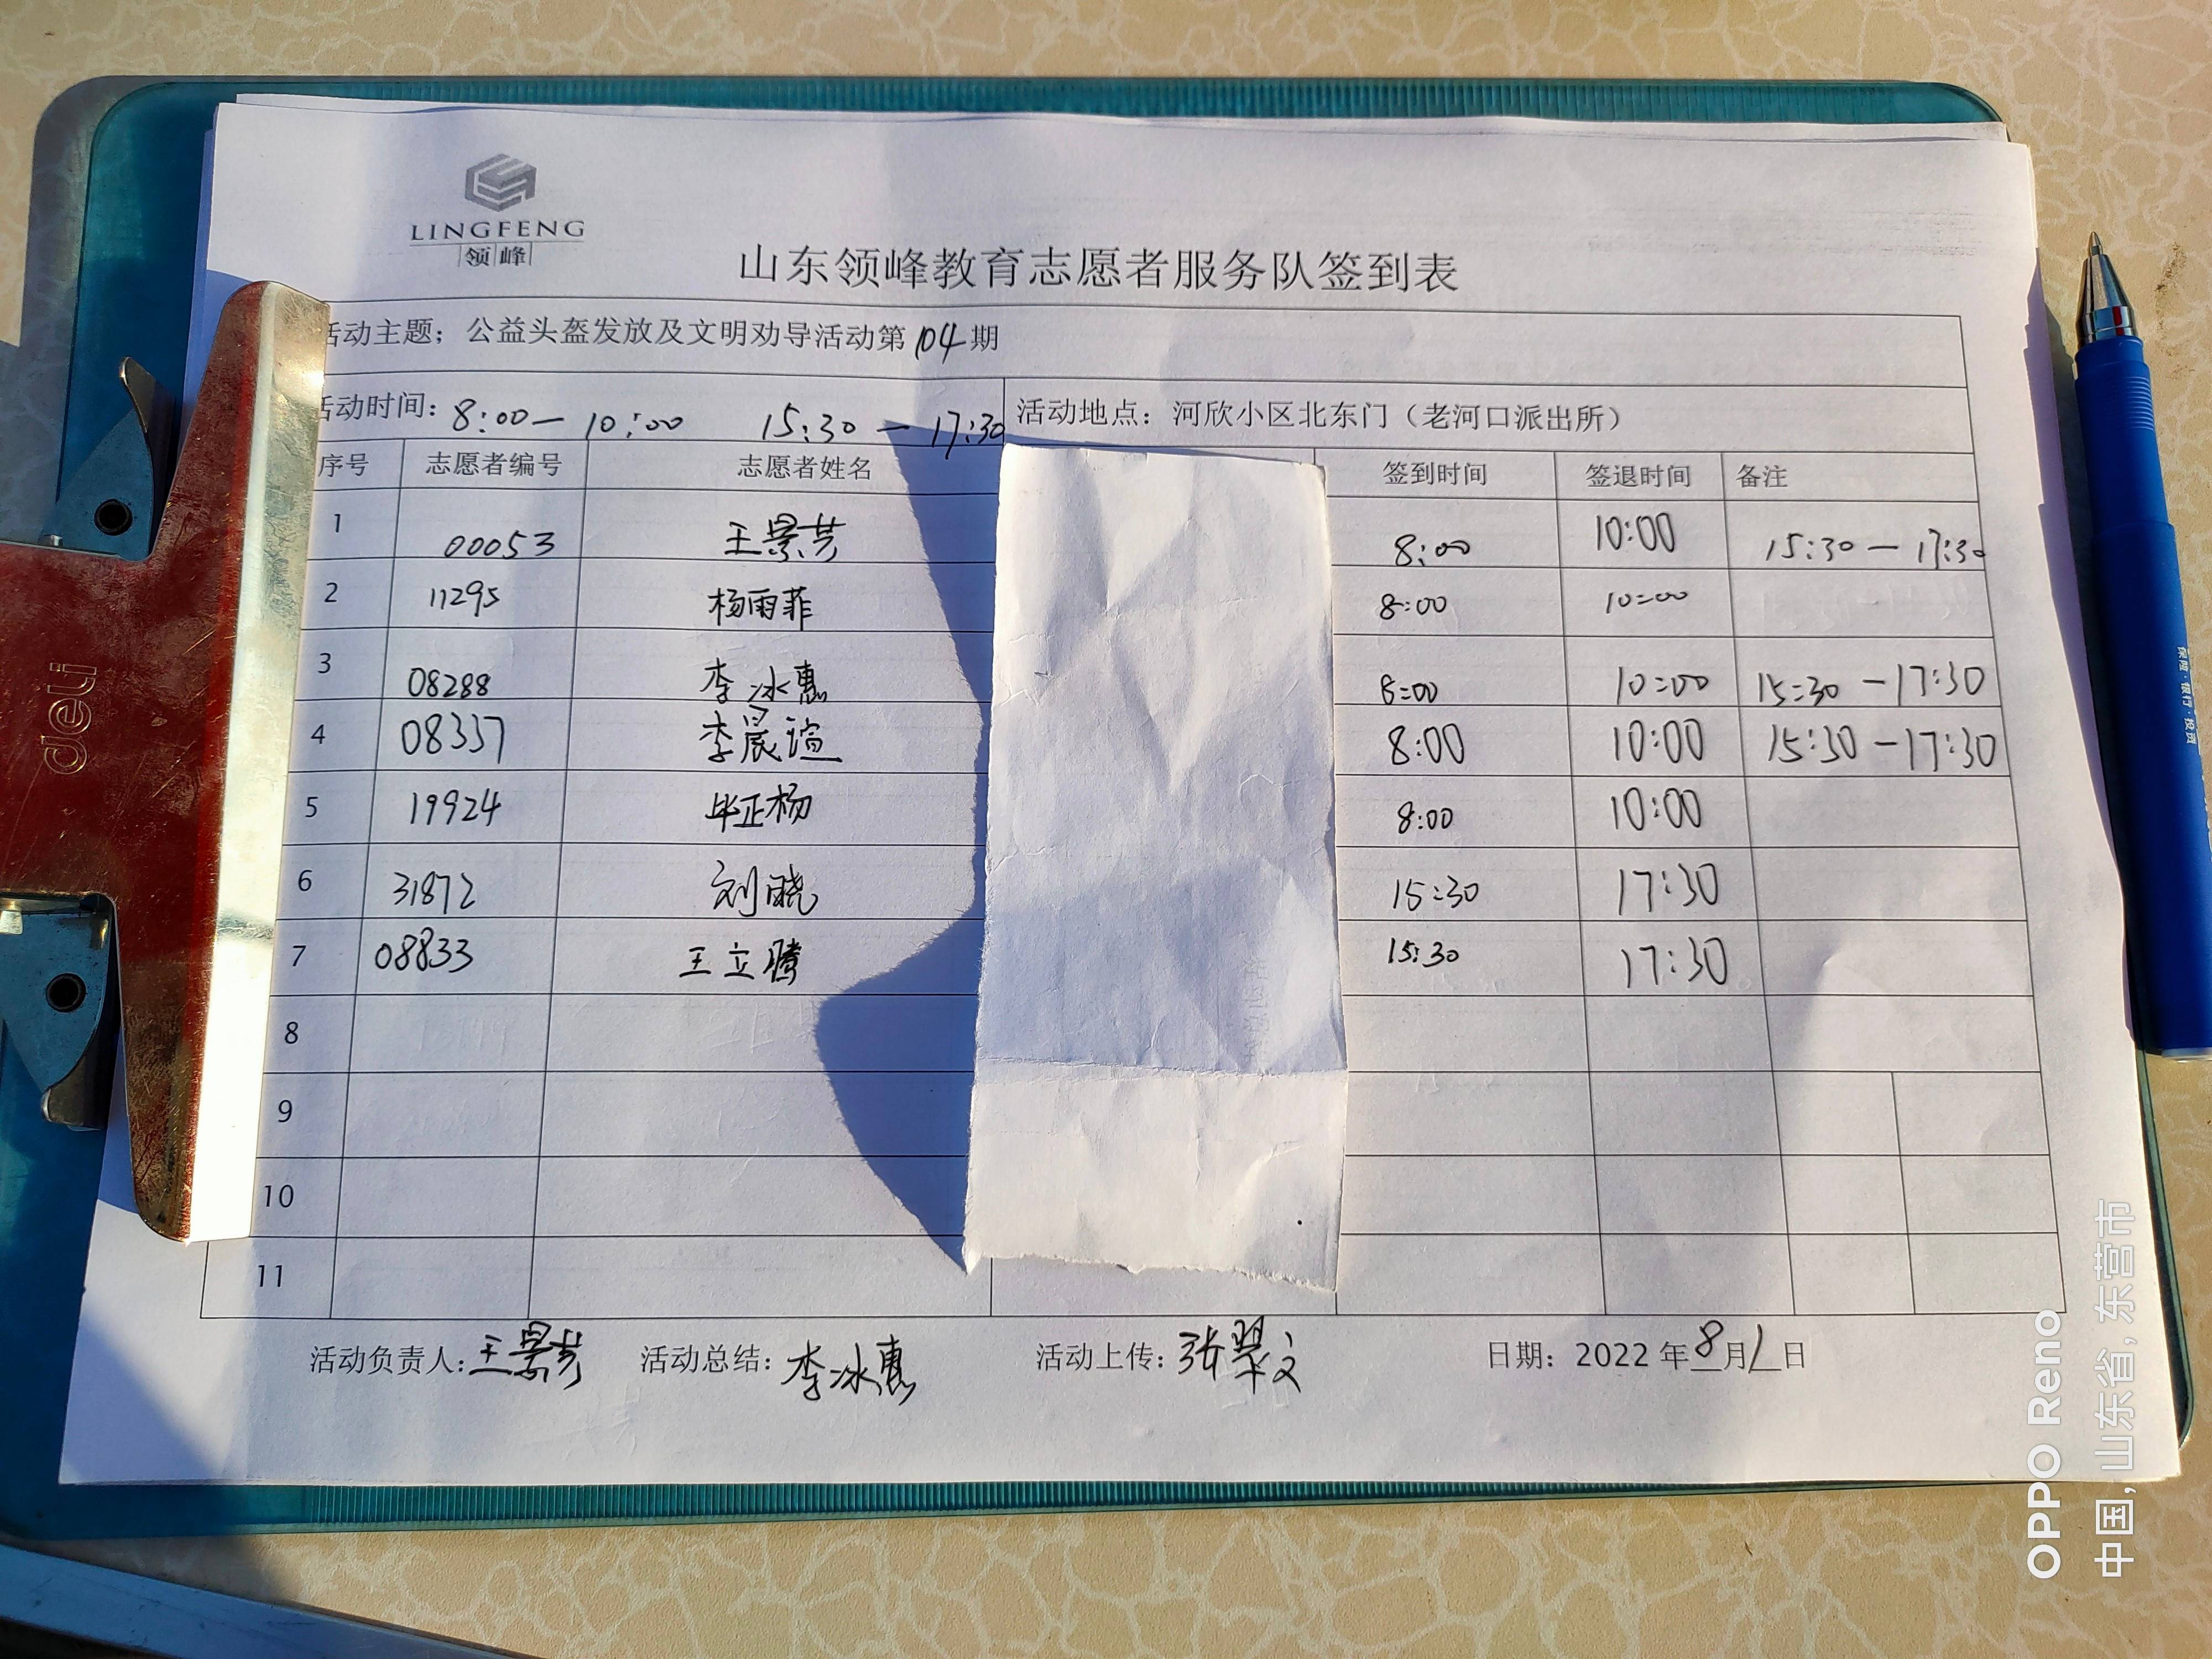 LINGFENG
领峰
山东领峰教育志愿者服务队签到表
活动主题；公益头盔发放及文明劝导活动第104期
活动时间：8:00—10:00 15:30—17:30 活动地点：河欣小区北东门（老河口派出所）
序号 志愿者编号 志愿者姓名 签到时间 签退时间 备注
1 00053 王景芸 8:00 10:00 15:30—17:30
2 11295 杨雨菲 8:00 10:00
3 08288 李冰惠 8:00 10:00 15:30—17:30
4 08337 李晟谊 8:00 10:00 15:30—17:30
5 19924 毕正杨 8:00 10:00
6 31872 刘晓 15:30 17:30
7 08833 王立腾 15:30 17:30
8
9
10
11
活动负责人：王景芸 活动总结：李冰惠 活动上传：张翠文 日期：2022年8月1日
deli
保险·银行·投资
OPPO Reno
中国，山东省，东营市